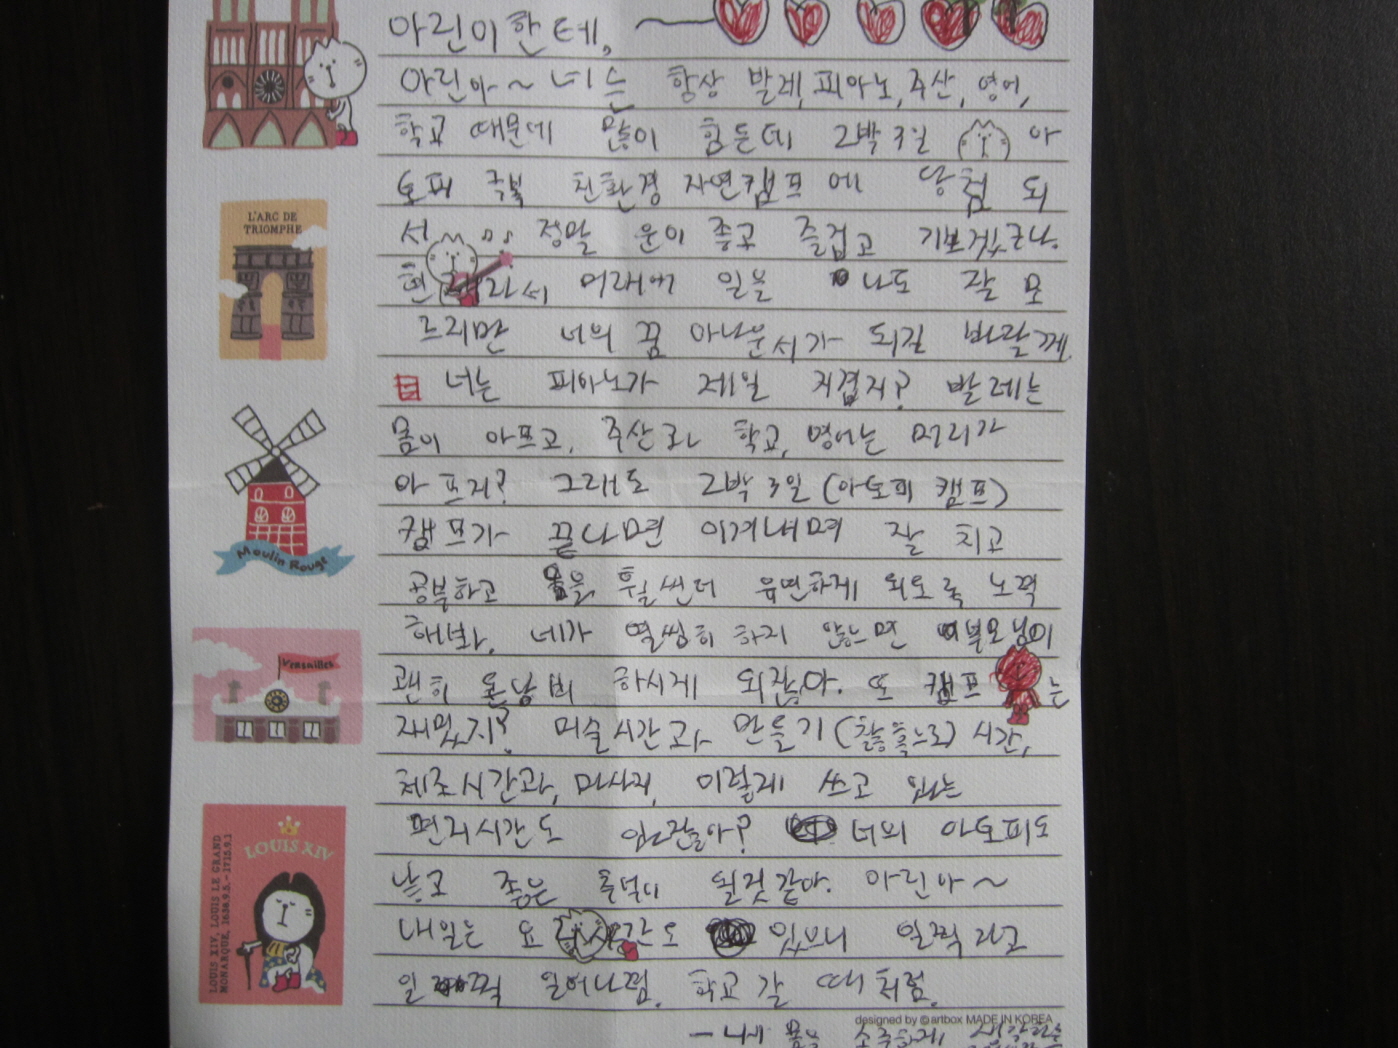 아린이한테,
아린아~ 너는 항상 발레, 피아노, 주산, 영어,
학교 때문에 많이 힘든데 2박 3일 아
토피 극복 친환경 자연캠프에 당첨 되
서 정말 운이 좋고 즐겁고 기쁘겠구나.
현 라서 미래에 일을 나도 잘 모
르지만 너의 꿈 아나운서가 되길 바랄께
너는 피아노가 제일 지겹지? 발레는
몸이 아프고, 주산과 학교, 영어는 머리가
아프지? 그래도 2박 3일 (아토피 캠프)
캠프가 끝나면 이겨내며 잘 치고
공부하고 몸을 훨씬더 유연하게 되도록 노력
해봐. 네가 열씸히 하지 않느면 부모님이
괜히 돈낭비 하시게 되잖아. 또 캠프 는
재밌지? 미술시간과 만들기 (찰흙으로) 시간,
체조시간과, 마사지, 이렇게 쓰고 있는
편지시간도 있잖아? 너의 아토피도
낫고 좋은 추억이 될것같아. 아린아~
내일은 요 시간도 있으니 일찍 자고
일 찍 일어나렴. 학교갈 때처럼.
designed by ⓒartbox MADE IN KOREA
- 네 몸을 소중하게 생각하는
L'ARC DE
TRIOMPHE
Moulin Rouge
Versailles
LOUIS XIV
LOUIS XIV, LOUIS LE GRAND
MONARQUE, 1638.9.5.-1715.9.1